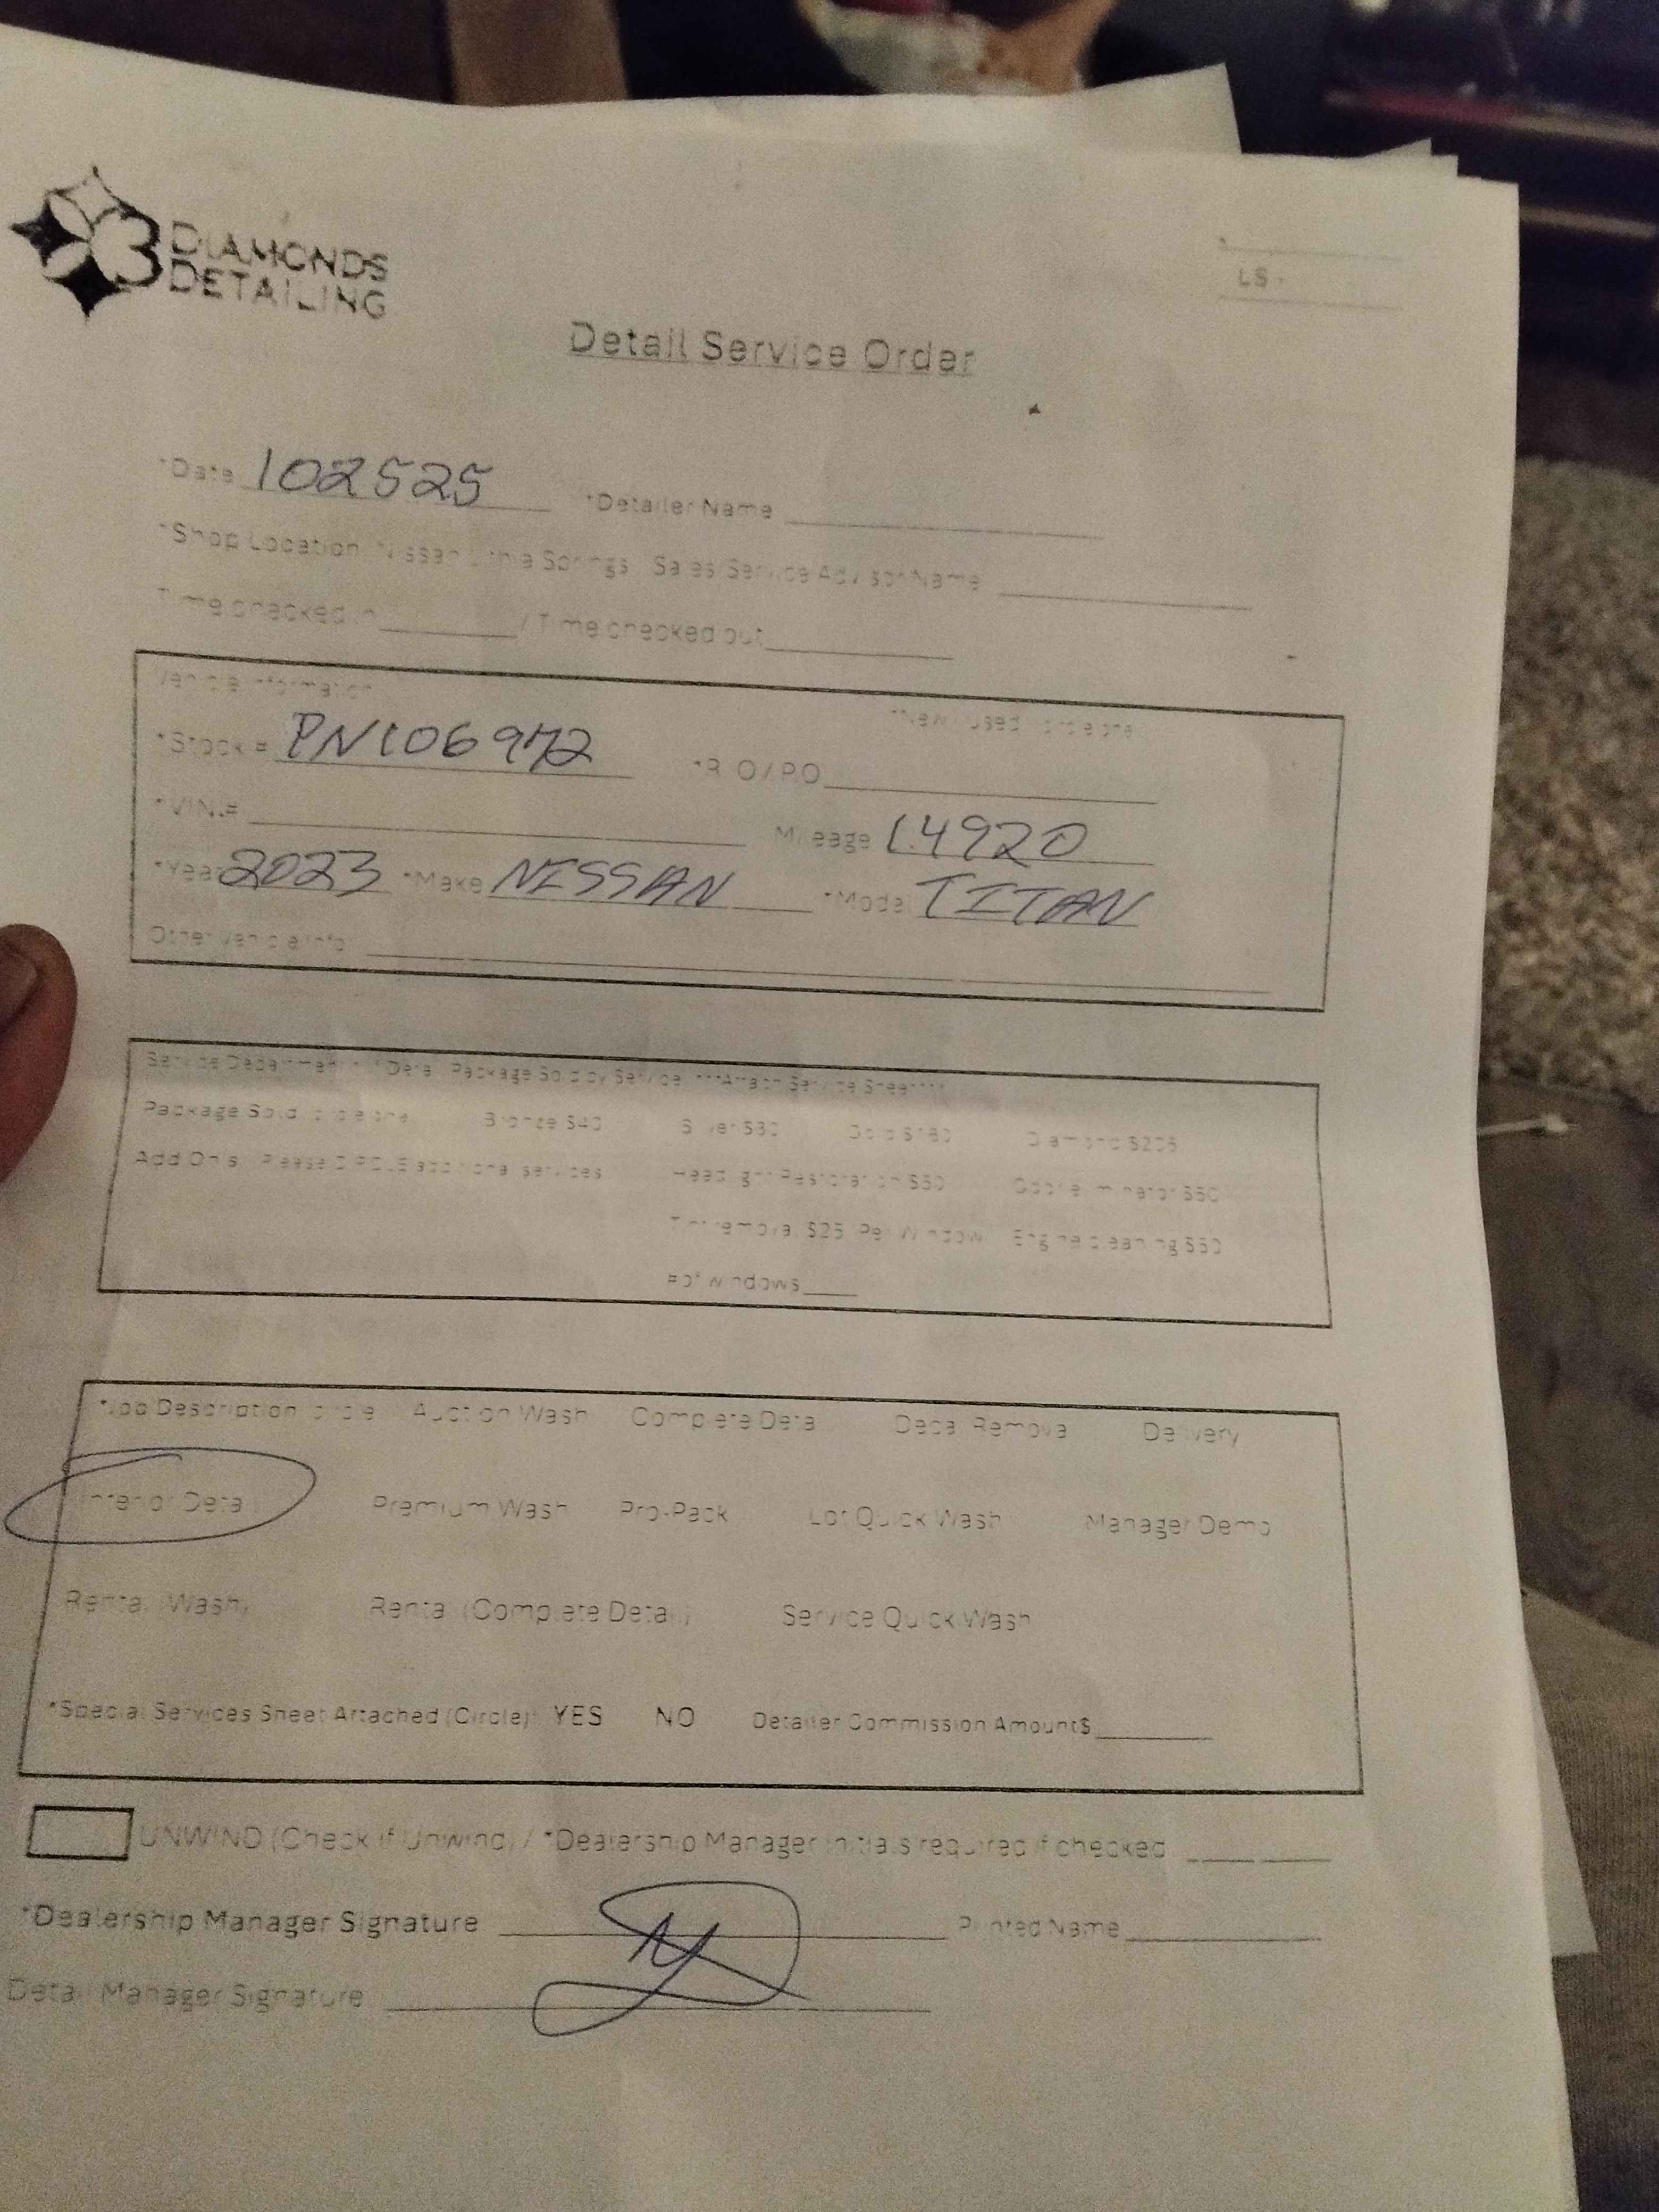 3 DIAMONDS
DETAILING
LS -
Detail Service Order
*Date 102525 *Detailer Name
*Shop Location: Nissan Lithia Springs Sales/Service Advisor Name
Time checked in / Time checked out
Vehicle Information
*New / Used (circle one)
*Stock # PN106972 *R.O / P.O
*VIN.# Mileage 14920
*Year 2023 *Make NISSAN *Model TITAN
Other vehicle info
Service Department Detail Package Sold by Service ***Attach Service Sheet***
Package Sold (circle one) Bronze $40 Silver $80 Gold $180 Diamond
Add Ons Please CIRCLE additional services Headlight Restoration Odor eliminator
Tint removal $25 Per Window Engine cleaning
# of windows
*Job Description (circle) Auction Wash Complete Detail Decal Removal Delivery
Interior Detail Premium Wash Pro-Pack Lot Quick Wash Manager Demo
Rental (Wash) Rental (Complete Detail) Service Quick Wash
*Special Services Sheet Attached (Circle) YES NO Detailer Commission Amount$
UNWIND (Check if Unwind) / *Dealership Manager initials required if checked
*Dealership Manager Signature Printed Name
Detail Manager Signature